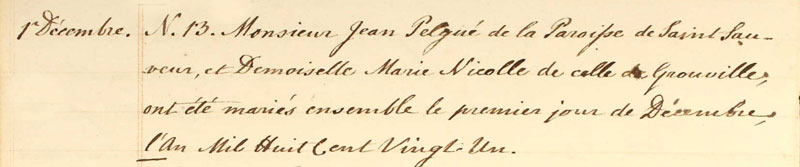 1r. Décembre. N. 13. Monsieur Jean Pelgué de la Paroisse de Saint Sau-
veur, et Demoiselle Marie Nicolle de celle de Grouville,
ont été mariés ensemble le premier jour de Décembre,
l'An Mil Huit Cent Vingt-Un.